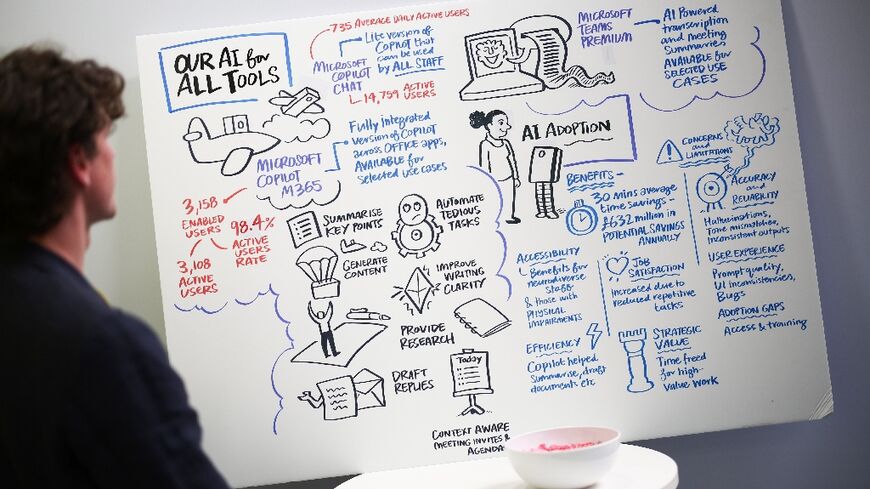 OUR AI for
ALL TOOLS
735 AVERAGE DAILY ACTIVE USERS
MICROSOFT
COPILOT
CHAT
Lite version of
COPILOT that
can be used
by ALL STAFF
14,759 ACTIVE
USERS
MICROSOFT
COPILOT
M365
Fully integrated
version of COPILOT
across OFFICE apps,
AVAILABLE for
selected use cases
3,158
ENABLED
USERS
98.4%
ACTIVE
USERS
RATE
3,108
ACTIVE
USERS
SUMMARISE
KEY POINTS
AUTOMATE
TEDIOUS
TASKS
GENERATE
CONTENT
IMPROVE
WRITING
CLARITY
PROVIDE
RESEARCH
DRAFT
REPLIES
Today
CONTEXT AWARE
MEETING INVITES &
AGENDA
MICROSOFT
TEAMS
PREMIUM
AI Powered
transcription
and meeting
Summaries
AVAILABLE for
SELECTED USE
CASES
AI ADOPTION
BENEFITS -
30 mins average
time savings -
£632 million in
POTENTIAL SAVINGS
ANNUALLY
ACCESSIBILITY
Benefits for
neurodiverse
staff
& those with
PHYSICAL
IMPAIRMENTS
JOB
SATISFACTION
Increased due to
reduced repetitive
tasks
EFFICIENCY
Copilot helped
Summarise, draft
documents etc
STRATEGIC
VALUE
Time freed
for high-
value work
CONCERNS
and
LIMITATIONS
ACCURACY
and
RELIABILITY
Hallucinations,
Tone mismatches,
Inconsistent outputs
USER EXPERIENCE
Prompt quality,
UI inconsistencies,
Bugs
ADOPTION GAPS
Access & training